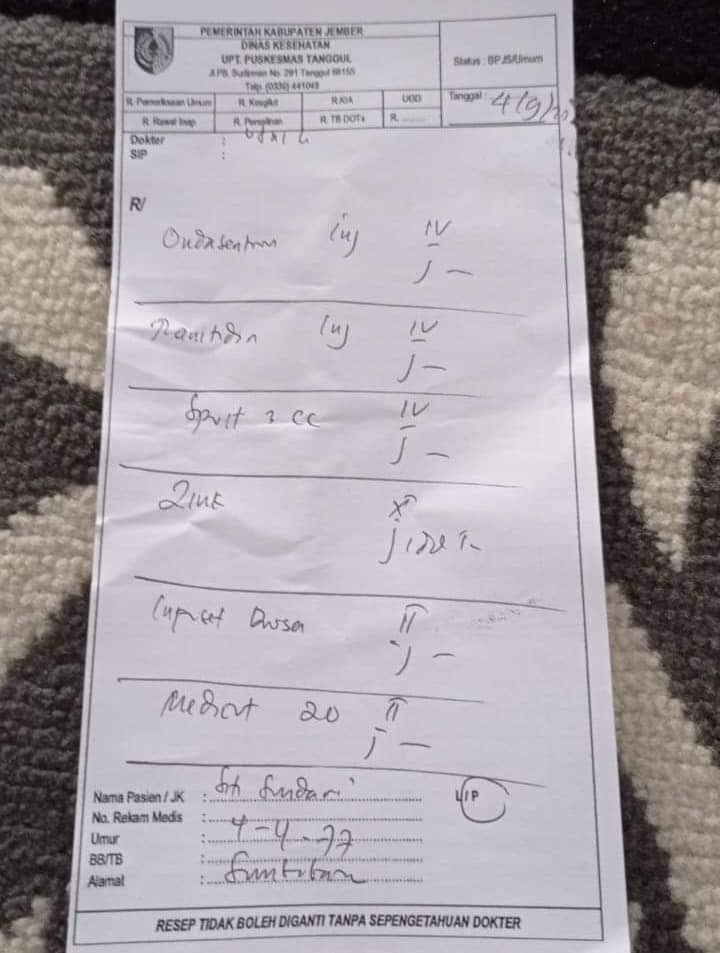 PEMERINTAH KABUPATEN JEMBER
DINAS KESEHATAN
UPT. PUSKESMAS TANGGUL
Jl.PB. Sudirman No. 291 Tanggul 68155
Telp. (0336) 441048
Status : BPJS/Umum
R. Pemeriksaan Umum R. Kesgilut R.KIA UGD
Tanggal : 4/9/
R. Rawat Inap R. Persalinan R. TB DOTs R. ........
Dokter :
SIP :
R/
Ondasentron inj IV
Ranitidin inj IV
Spuit 3 cc IV
Zink X
Infuset Dwsa II
Medicut 20 II
Nama Pasien / JK : Siti Sundari
No. Rekam Medis :
Umur : 4-4-77
BB/TB :
Alamat :
RESEP TIDAK BOLEH DIGANTI TANPA SEPENGETAHUAN DOKTER